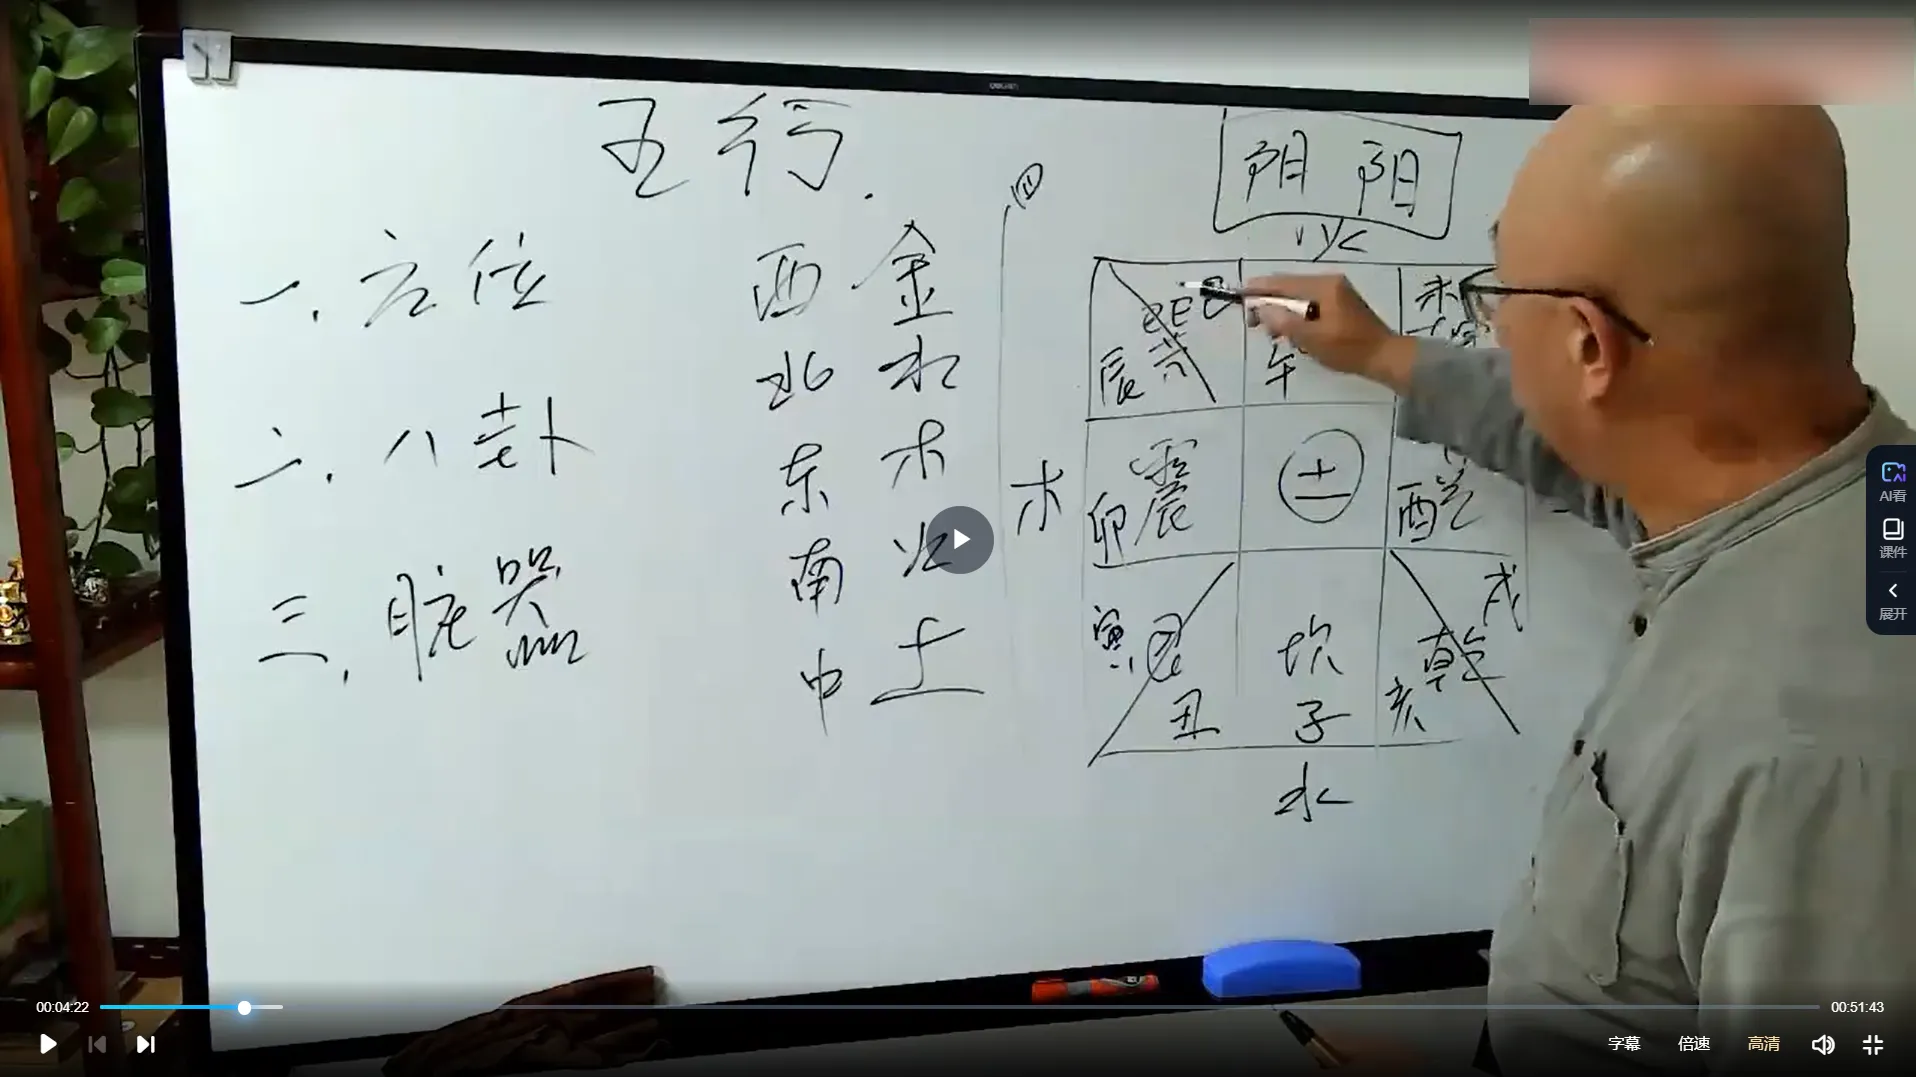 五行.
四
阴 阳
火
一. 方位
西 金
巽 巳
辰
午
北 水
二. 八卦
东 木
木
卯 震
土
酉 兑
南 火
三. 脏器
中 土
寅 艮
丑
坎
子
戌
乾
亥
水
AI看
课件
展开
00:04:22
00:51:43
字幕
倍速
高清